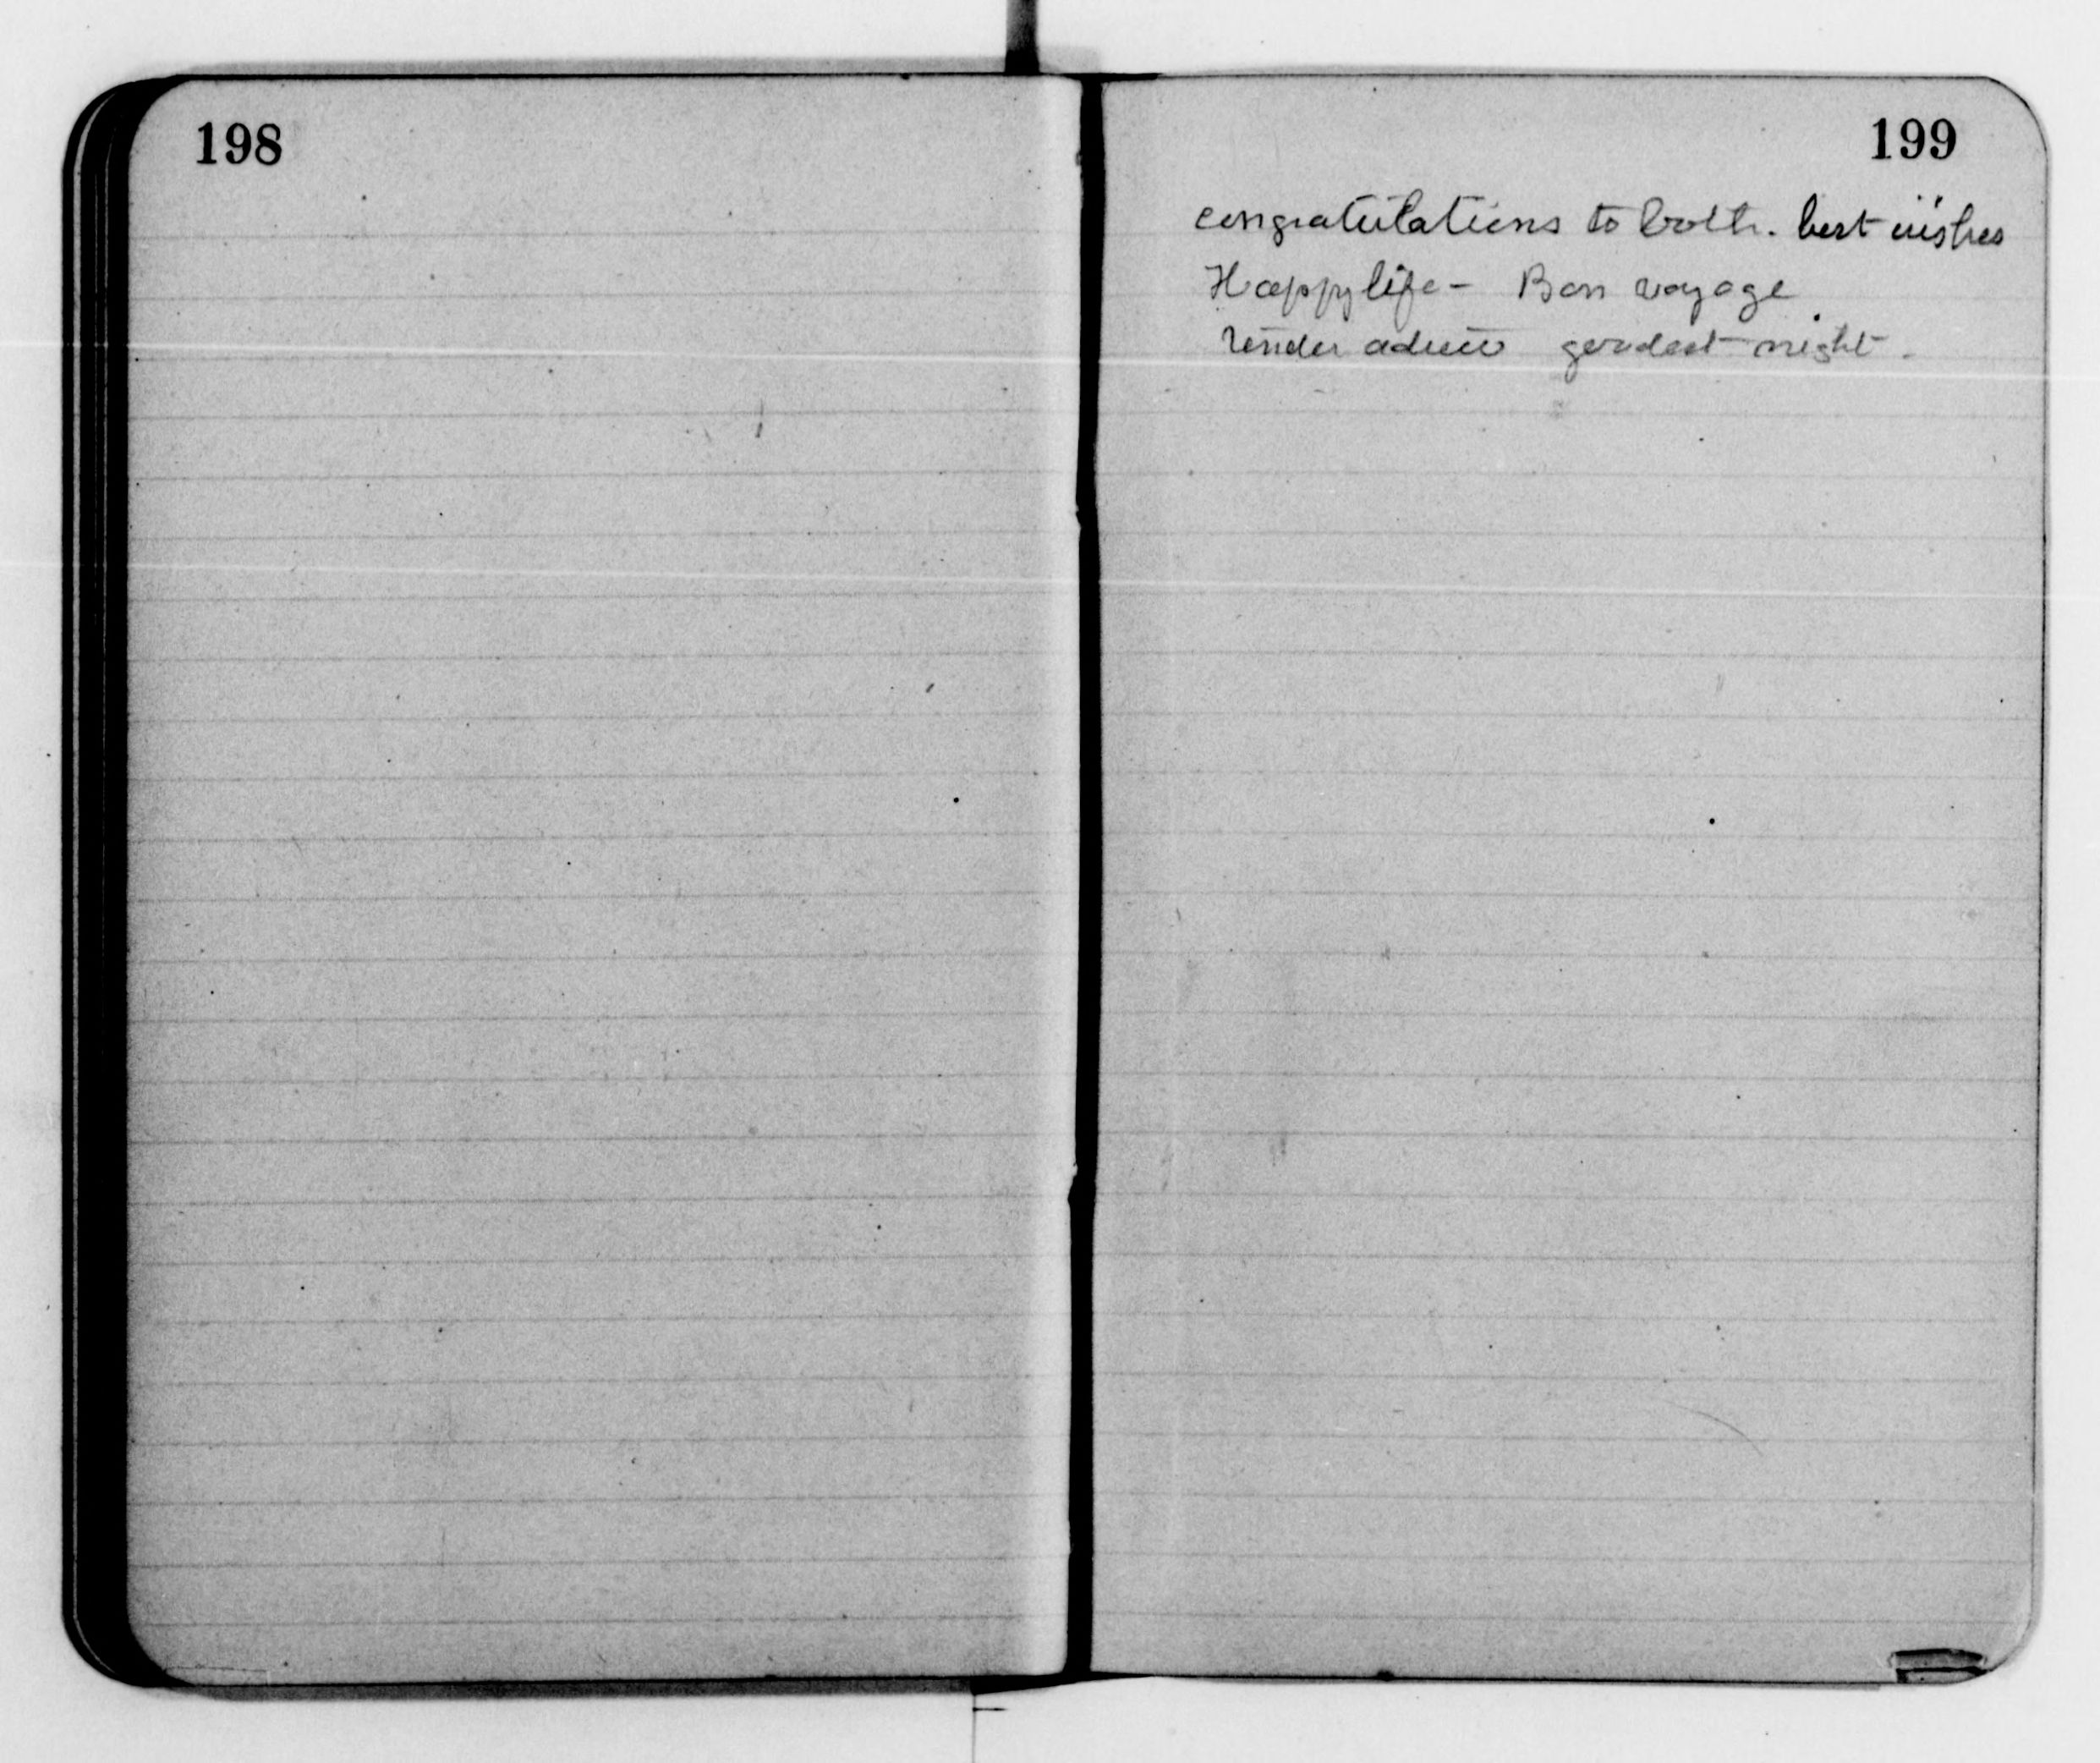 198
199
congratulations to both. best wishes
Happy life - Bon voyage
tender adieu goodest night.